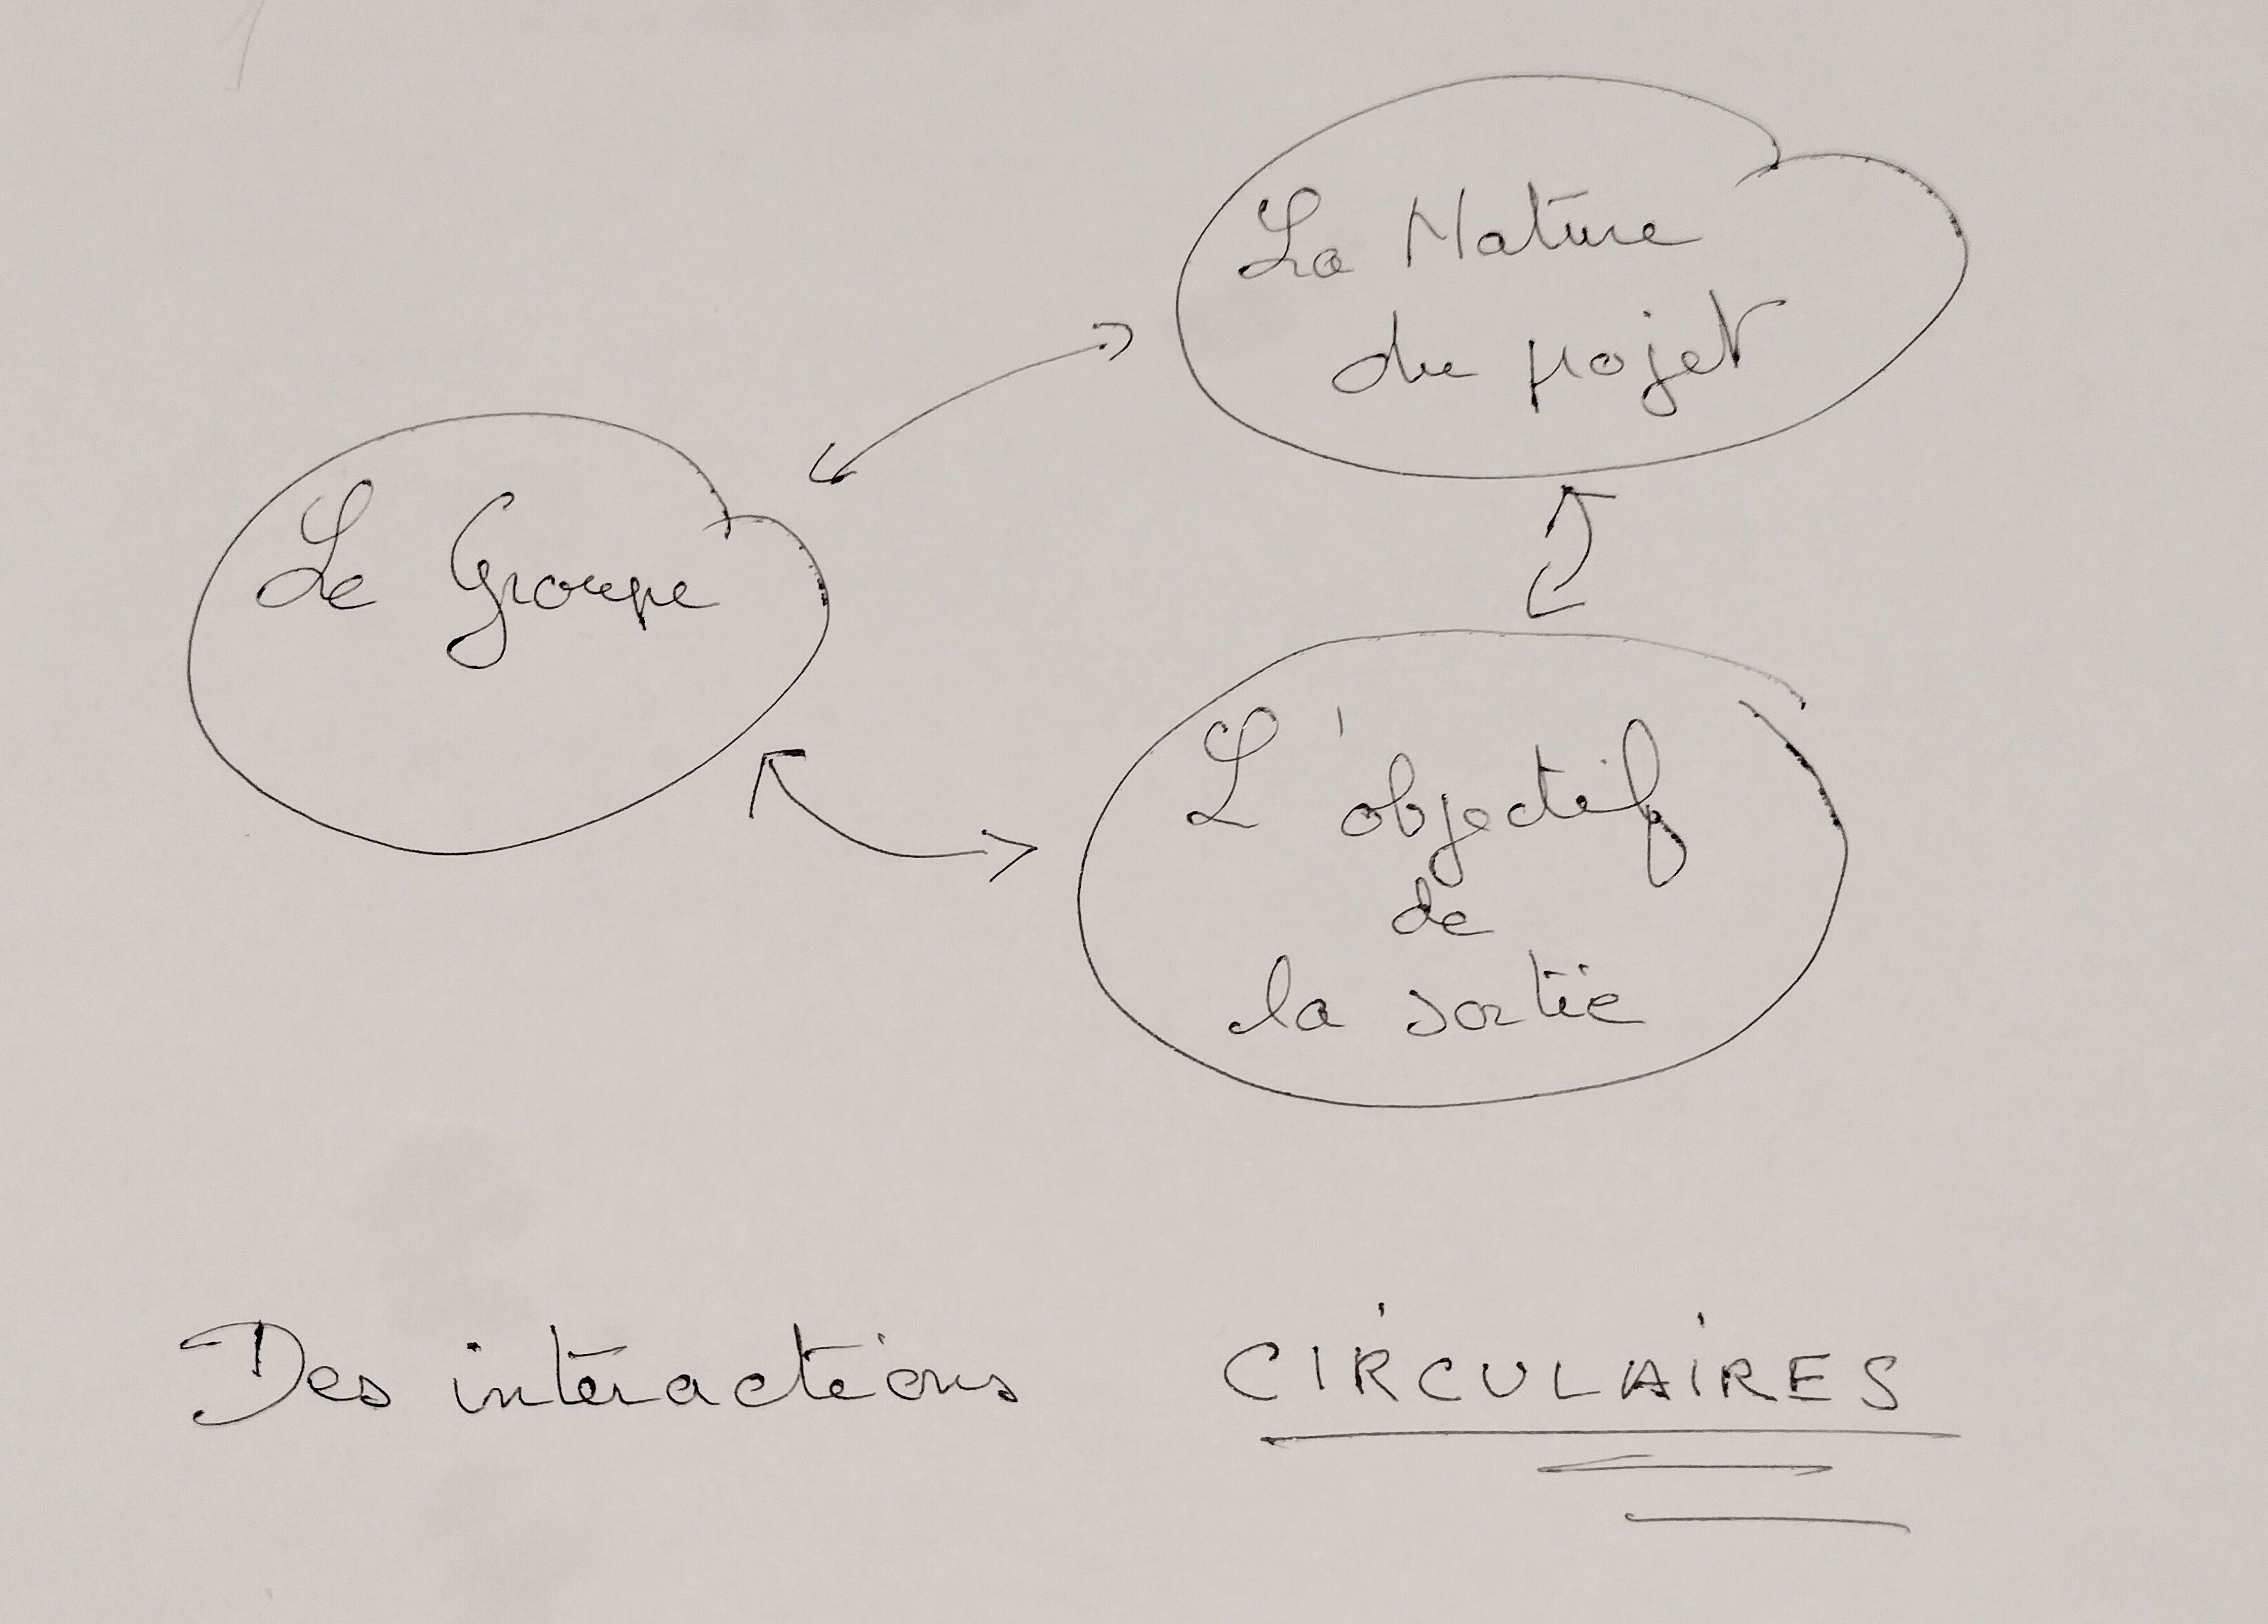 La Nature
du projet
Le Groupe
L'objectif
de
la sortie
Des interactions CIRCULAIRES